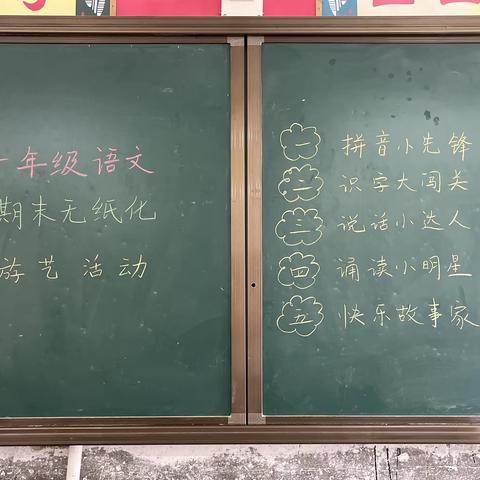 一年级语文
期末无纸化
游艺活动
一 拼音小先锋
二 识字大闯关
三 说话小达人
四 诵读小明星
五 快乐故事家